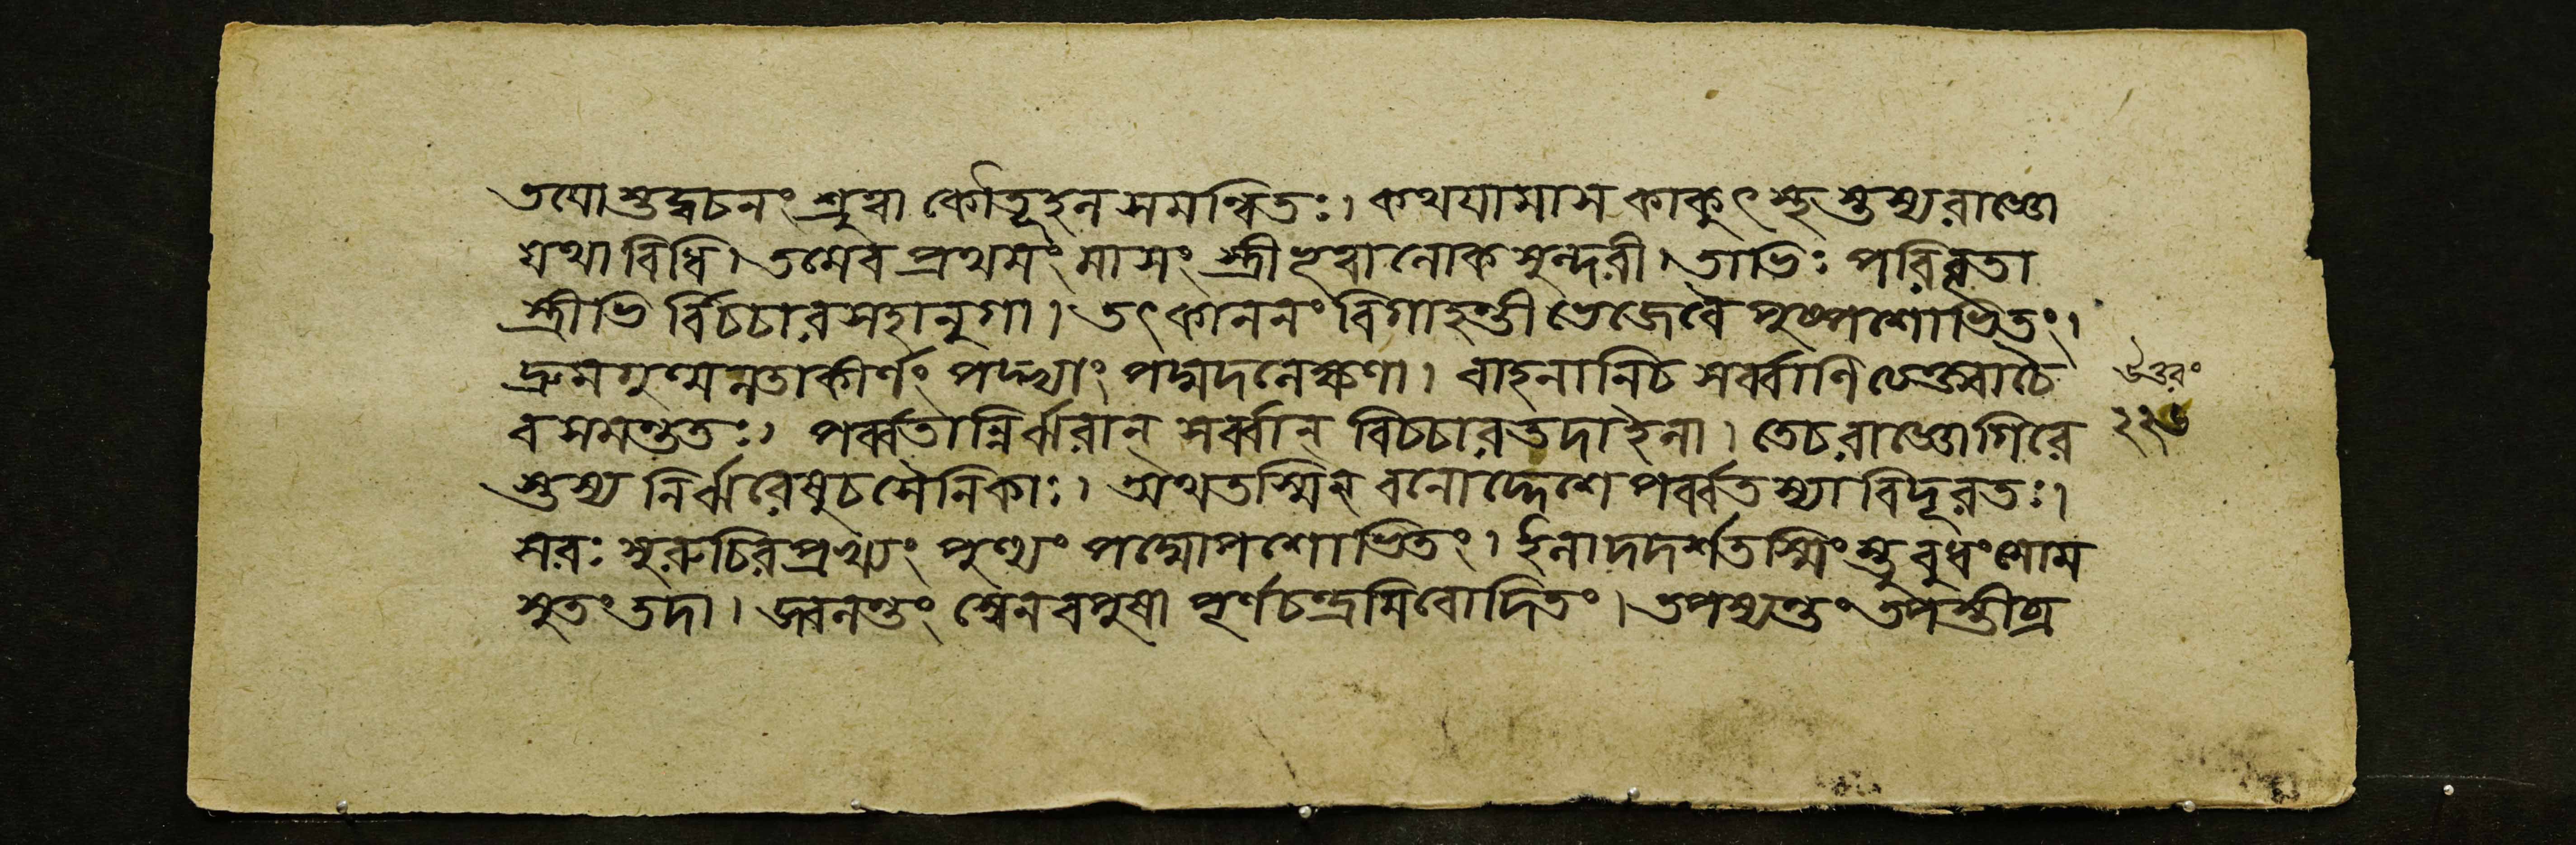 তযোস্তদ্বচনং শ্রুত্বা কৌতূহলসমন্বিতঃ। কথযামাস কাকুৎস্থস্তস্য রাজ্ঞো
যথাবিধি। তমেব প্রথমং মাসং স্ত্রীভূত্বা লোকসুন্দরী। তাভিঃ পরিবৃতা
স্ত্রীভি র্বিচচার সহানুগা। তৎকাননং বিগাহন্তী ভেজেবৈ পুষ্পশোভিতং।
দ্রুমগুল্মলতাকীর্ণং পদ্ভ্যাং পদ্মদলেক্ষণা। বাহনানিচ সর্ব্বাণি ত্যেক্ত্বাচৈ
ব সমন্ততঃ। পর্ব্বতান্নির্ঝরান্ সর্ব্বান্ বিচচার তদা ইলা। তেচ রাজ্ঞোগিরে
স্তস্য নির্ঝরেষুচ সৈনিকাঃ। অথ তস্মিন্ বনোদ্দেশে পর্ব্বতস্যাবিদূরতঃ।
সরঃ সুরুচিরপ্রখ্যং পুণ্যং পদ্মোপশোভিতং। ইলা দদর্শ তস্মিংস্তু বুধং সোম
সুতং তদা। জ্বলন্তং স্বেন বপুষা পূর্ণচন্দ্রমিবোদিতং। তপস্যন্তং তপস্তীব্র
উত্তরং
২২৬